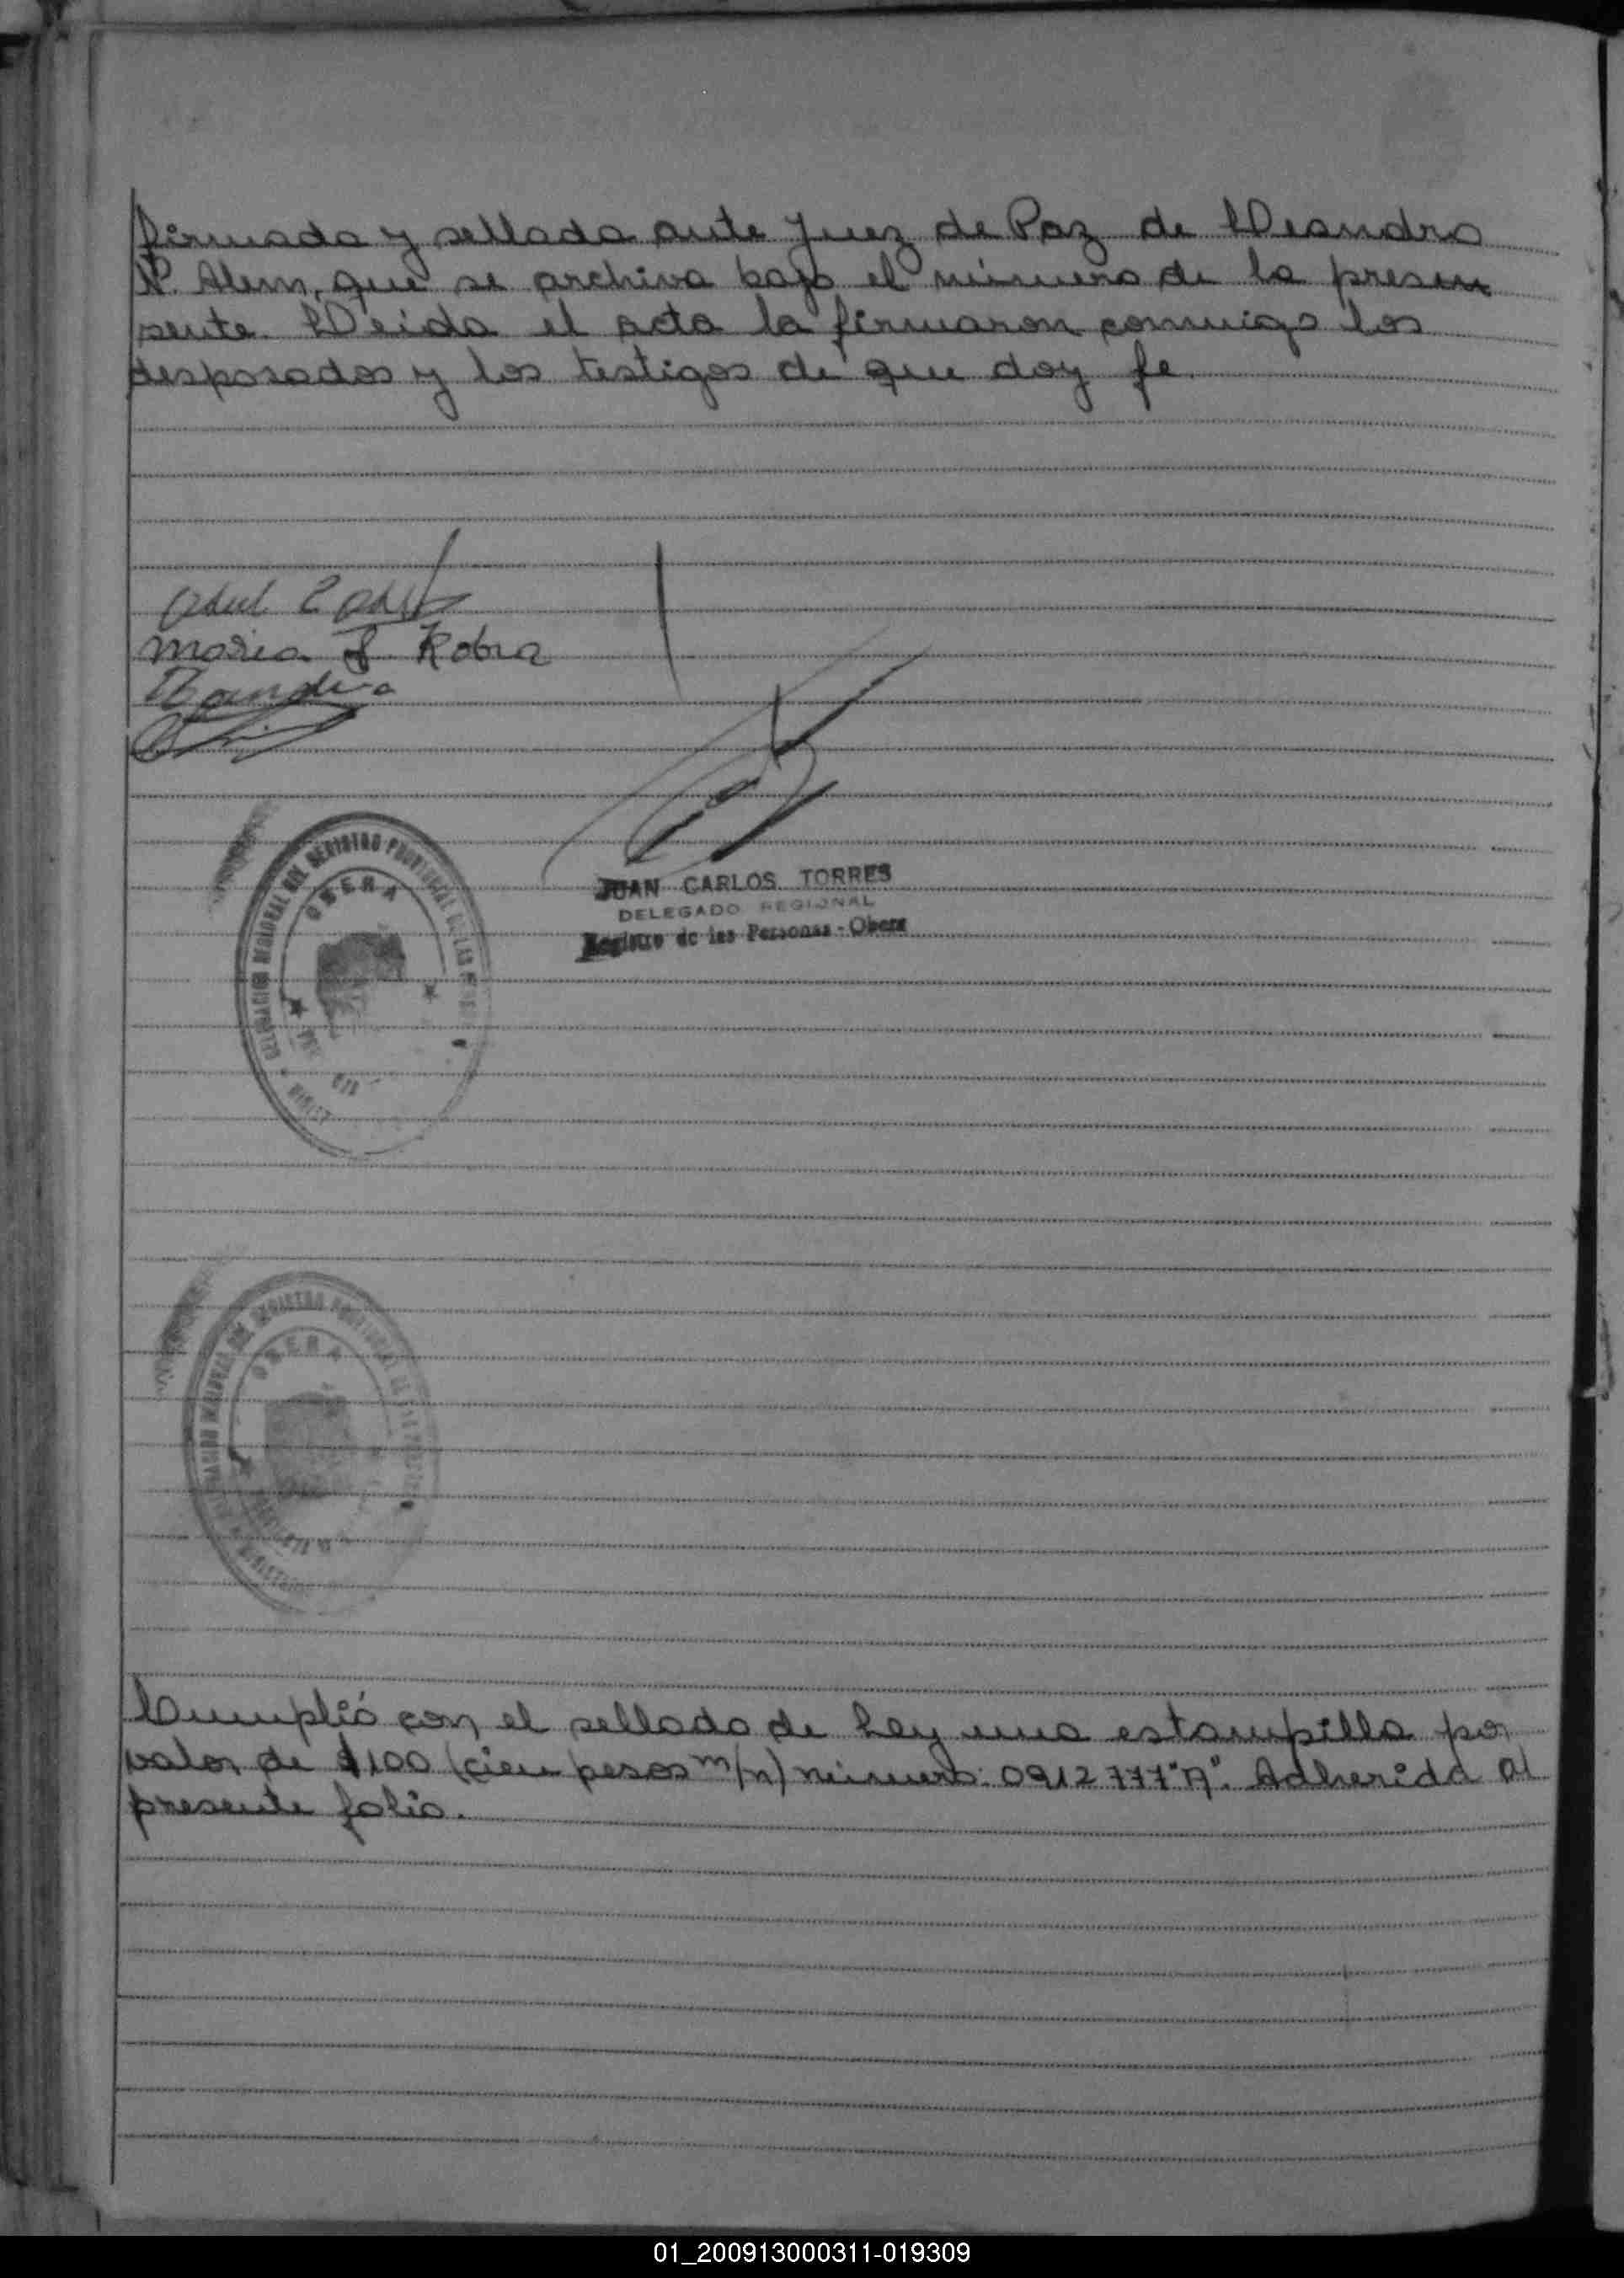 firmada y sellada ante Juez de Paz de Leandro
N. Alem, que se archiva bajo el número de la presen
sente. Leida el acta la firmaron conmigo los
desposados y los testigos de que doy fe.
Maria
JUAN CARLOS TORRES
DELEGADO REGIONAL
Registro de las Personas - Obera
DELEGACION REGIONAL DEL REGISTRO PROVINCIAL DE LAS
OBERA
OBERA
Cumplió con el sellado de Ley una estampilla por
valor de $100 (cien pesos m/n) número: 0912777"A". Adherida al
presente folio.
01_200913000311-019309